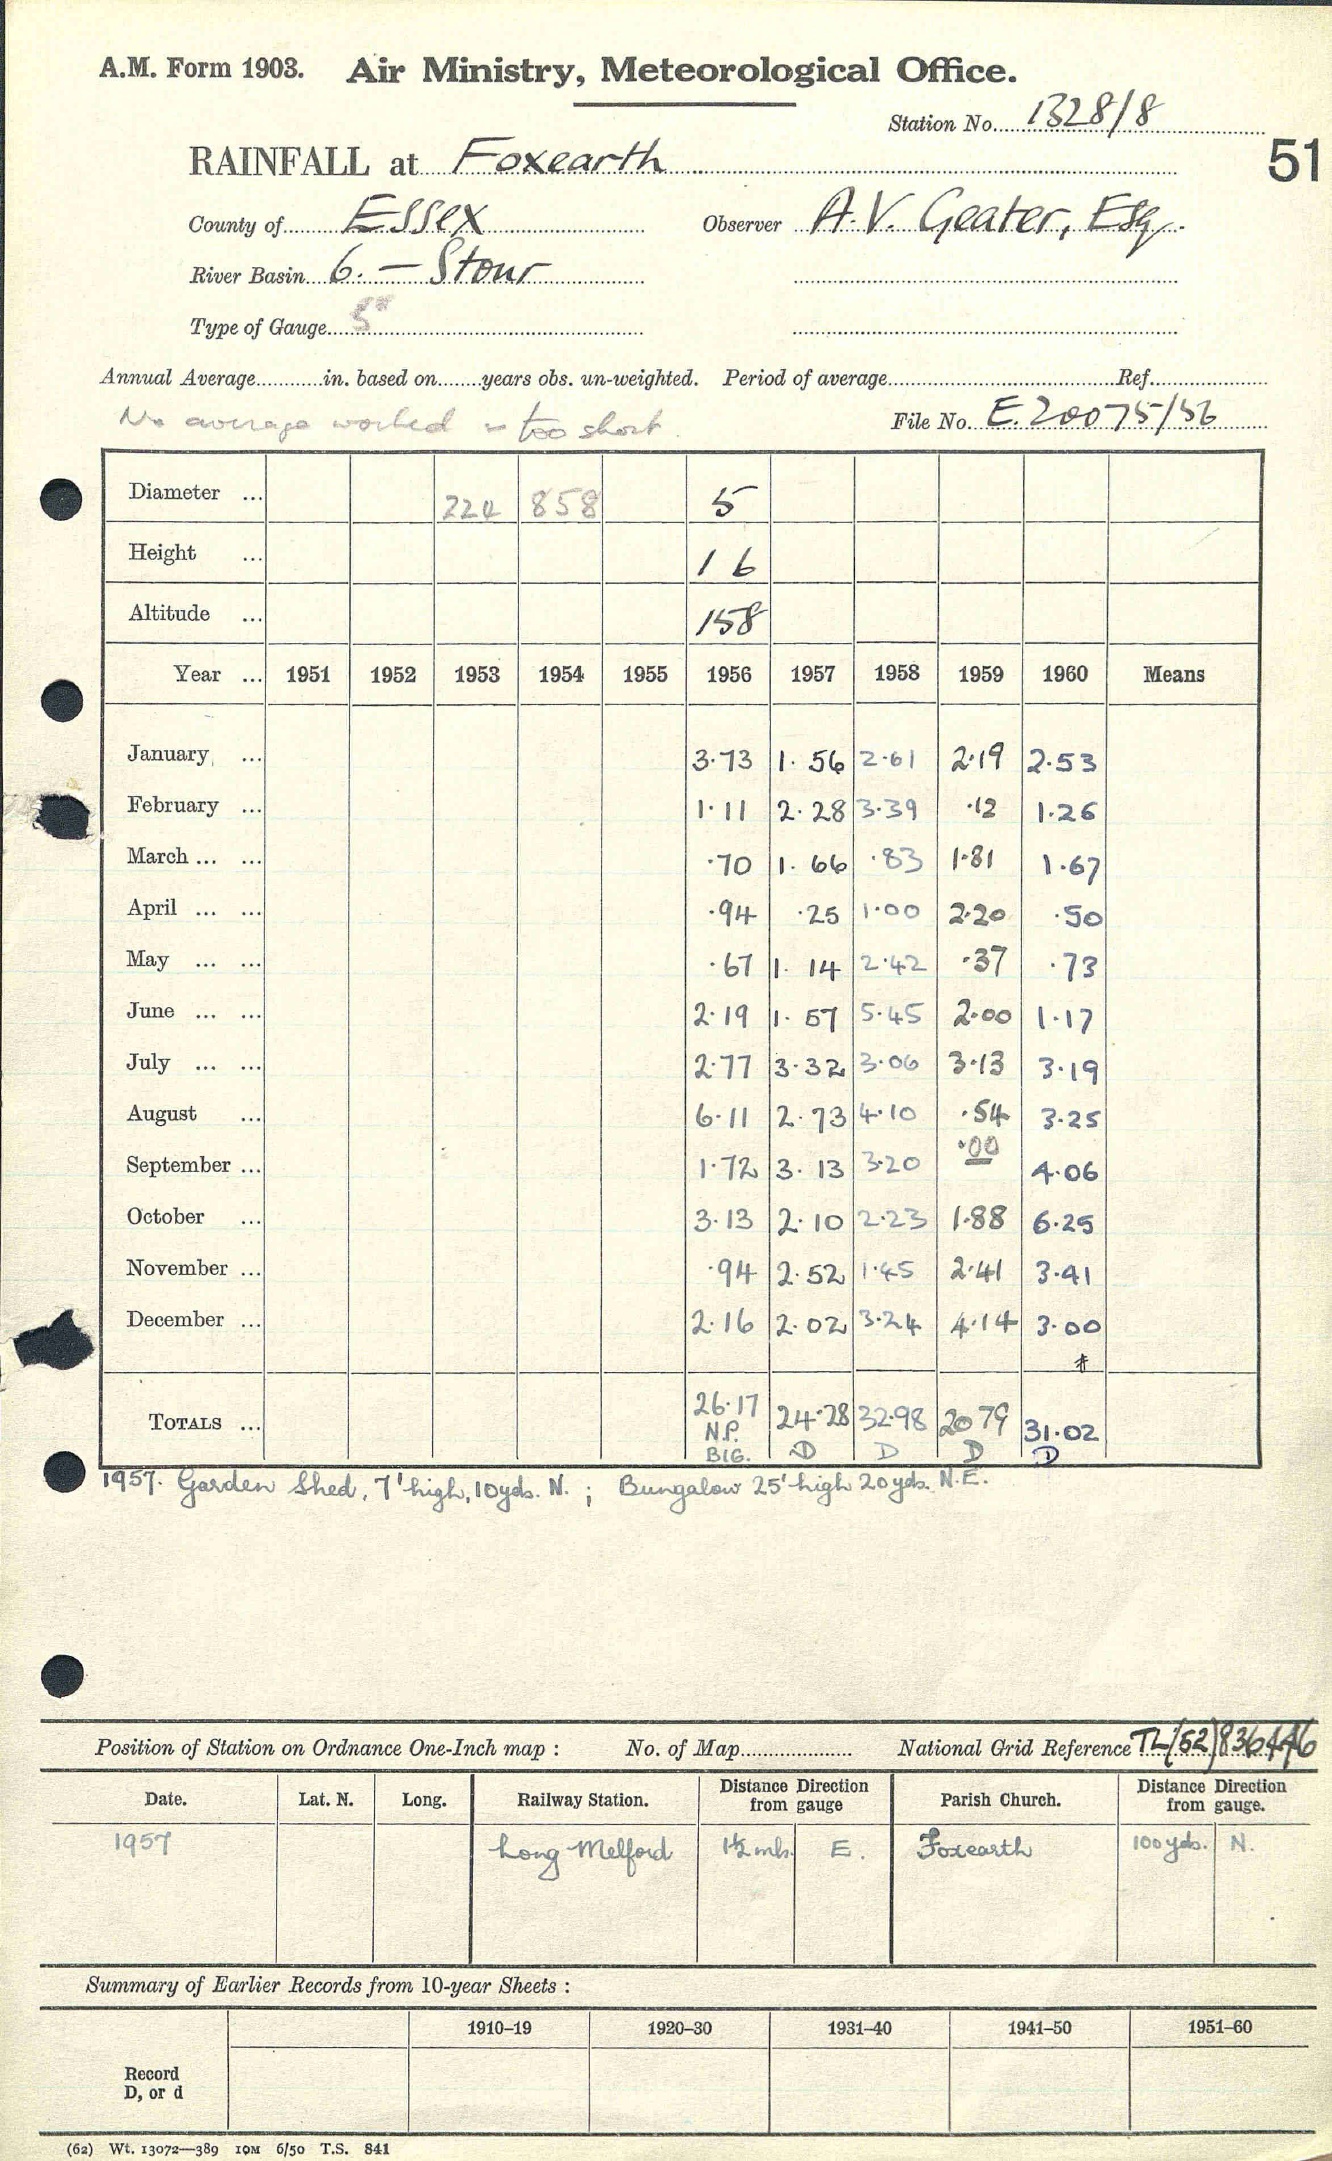 A.M. Form 1903. Air Ministry, Meteorological Office.
Station No. 1328/8
51
RAINFALL at Foxearth
County of Essex Observer A.V. Geater, Esq.
River Basin 6. — Stour
Type of Gauge 5"
Annual Average in. based on years obs. un-weighted. Period of average Ref.
No average worked - too short
File No. E.20075/56
Diameter ... 224 858 5
Height ... 1 6
Altitude ... 158
Year ... 1951 1952 1953 1954 1955 1956 1957 1958 1959 1960 Means
January ... 3.73 1.56 2.61 2.19 2.53
February ... 1.11 2.28 3.39 .12 1.26
March ... ... .70 1.66 .83 1.81 1.67
April ... ... .94 .25 1.00 2.20 .50
May ... ... .67 1.14 2.42 .37 .73
June ... ... 2.19 1.57 5.45 2.00 1.17
July ... ... 2.77 3.32 3.06 3.13 3.19
August ... 6.11 2.73 4.10 .54 3.25
September ... 1.72 3.13 3.20 .00 4.06
October ... 3.13 2.10 2.23 1.88 6.25
November ... .94 2.52 1.45 2.41 3.41
December ... 2.16 2.02 3.24 4.14 3.00
TOTALS ... 26.17 24.28 32.98 20 79 31.02
N.P. D D D D
BIG.
1957. Garden Shed, 7' high, 10 yds. N. ; Bungalow 25' high 20 yds. N.E.
Position of Station on Ordnance One-Inch map : No. of Map National Grid Reference TL(52)836446
Date. Lat. N. Long. Railway Station. Distance from gauge Direction Parish Church. Distance from gauge. Direction
1957 Long Melford 1½ mls. E. Foxearth 100 yds. N.
Summary of Earlier Records from 10-year Sheets :
1910–19 1920–30 1931–40 1941–50 1951–60
Record
D, or d
(62) Wt. 13072—389 10M 6/50 T.S. 841